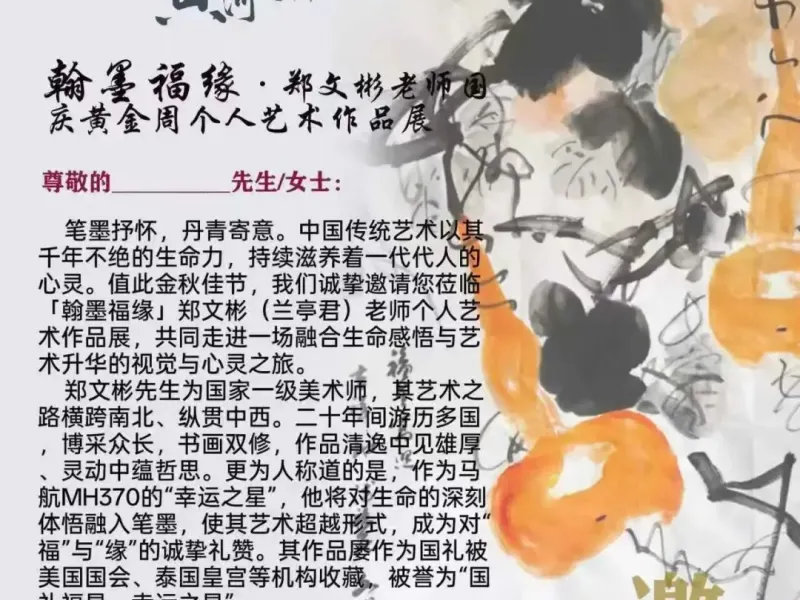 翰墨福缘·郑文彬老师国
庆黄金周个人艺术作品展
尊敬的__________先生/女士：
笔墨抒怀，丹青寄意。中国传统艺术以其
千年不绝的生命力，持续滋养着一代代人的
心灵。值此金秋佳节，我们诚挚邀请您莅临
「翰墨福缘」郑文彬（兰亭君）老师个人艺
术作品展，共同走进一场融合生命感悟与艺
术升华的视觉与心灵之旅。
郑文彬先生为国家一级美术师，其艺术之
路横跨南北、纵贯中西。二十年间游历多国
，博采众长，书画双修，作品清逸中见雄厚
、灵动中蕴哲思。更为人称道的是，作为马
航MH370的“幸运之星”，他将对生命的深刻
体悟融入笔墨，使其艺术超越形式，成为对“
福”与“缘”的诚挚礼赞。其作品屡作为国礼被
美国国会、泰国皇宫等机构收藏，被誉为“国
邀